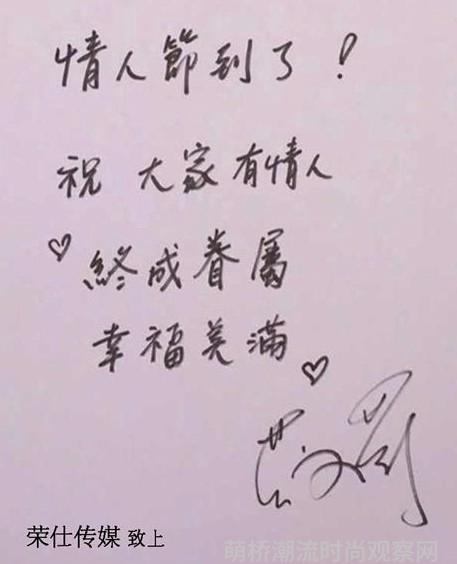 情人節到了！
祝 大家有情人
♡ 終成眷屬
幸福美滿 ♡
荣仕传媒 致上
萌桥潮流时尚观察网